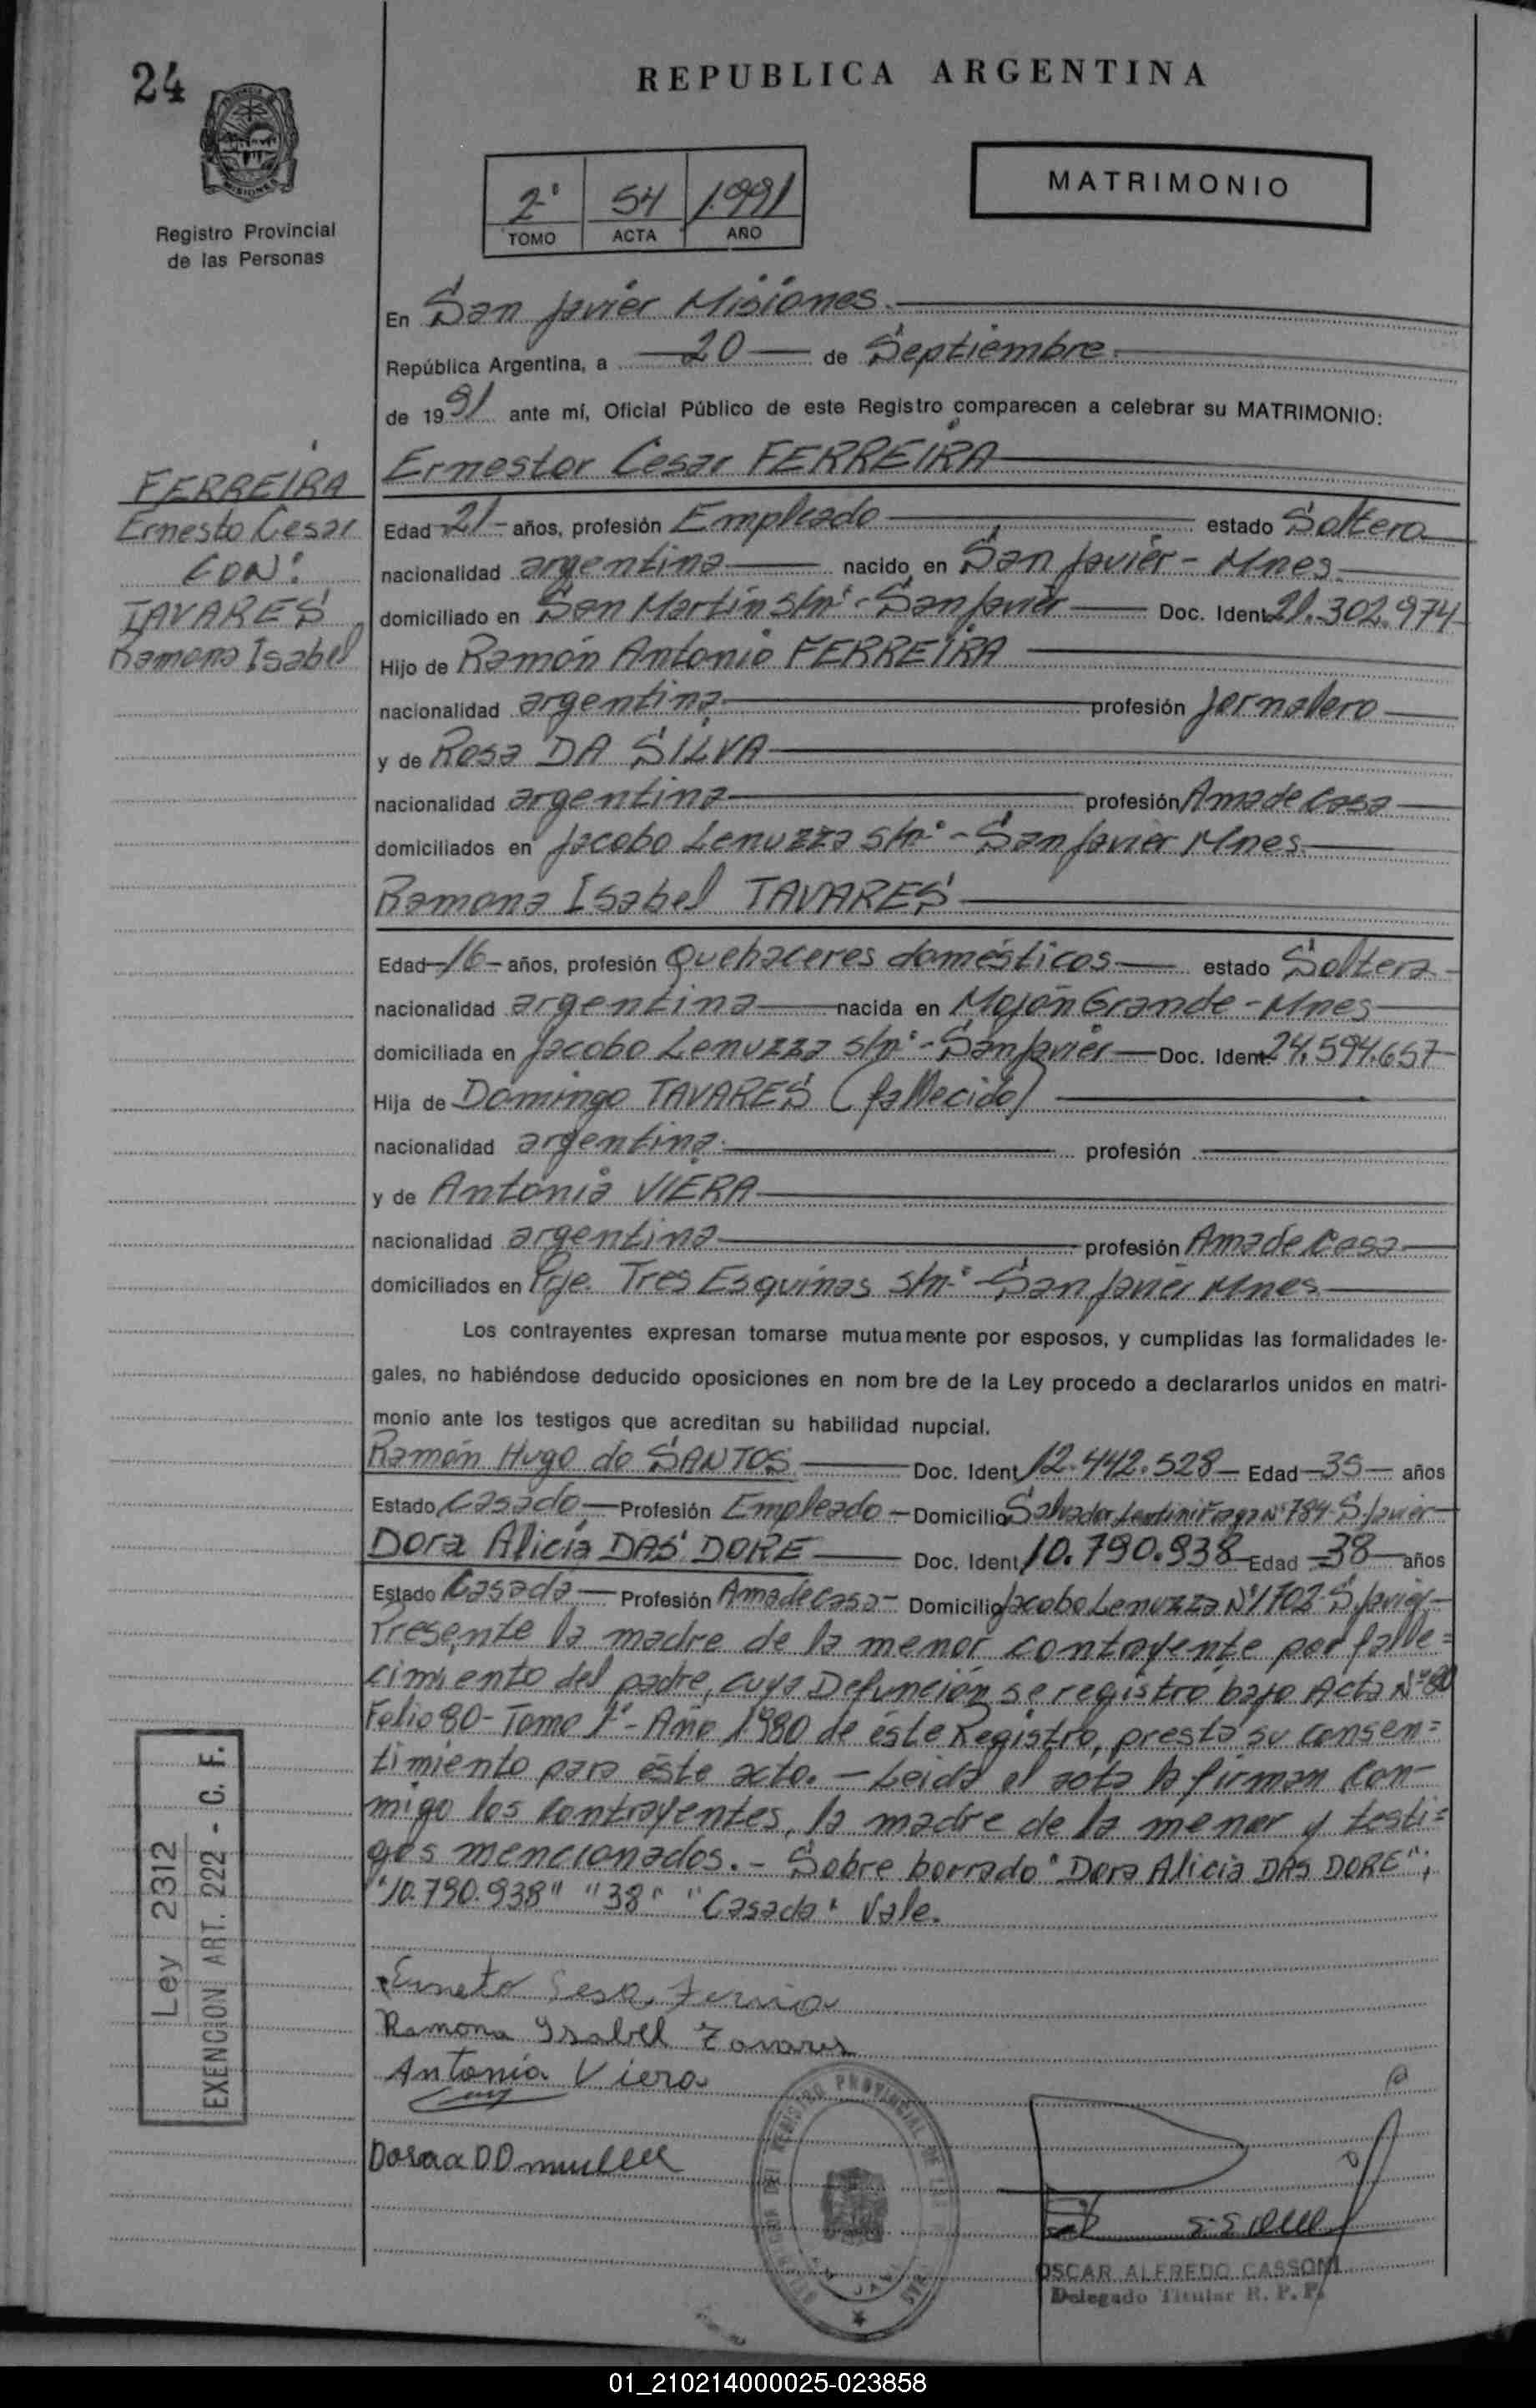 24
REPUBLICA ARGENTINA
PROVINCIA DE MISIONES
Registro Provincial
de las Personas
2º 54 1.991
TOMO ACTA AÑO
MATRIMONIO
En San Javier Misiones.
República Argentina, a 20 de Septiembre.
de 1991 ante mí, Oficial Público de este Registro comparecen a celebrar su MATRIMONIO:
Ernestor Cesar FERREIRA
FERREIRA
Ernesto Cesar
CON:
TAVARES
Ramona Isabel
Edad 21 años, profesión Empleado estado Soltero
nacionalidad argentina nacido en San Javier - Mnes.
domiciliado en San Martín s/nº - San Javier Doc. Ident. 21.302.974
Hijo de Ramón Antonio FERREIRA
nacionalidad argentina profesión Jornalero
y de Rosa DA SILVA
nacionalidad argentina profesión Ama de Casa
domiciliados en Jacobo Lenuzza s/nº - San Javier Mnes.
Ramona Isabel TAVARES
Edad 16 años, profesión Quehaceres domésticos estado Soltera
nacionalidad argentina nacida en Mojón Grande - Mnes
domiciliada en Jacobo Lenuzza s/nº - San Javier Doc. Ident. 24.594.657
Hija de Domingo TAVARES (fallecido)
nacionalidad argentina profesión
y de Antonia VIERA
nacionalidad argentina profesión Ama de Casa
domiciliados en Prje. Tres Esquinas s/nº - San Javier Mnes
Los contrayentes expresan tomarse mutuamente por esposos, y cumplidas las formalidades le-
gales, no habiéndose deducido oposiciones en nom bre de la Ley procedo a declararlos unidos en matri-
monio ante los testigos que acreditan su habilidad nupcial.
Ramón Hugo do SANTOS Doc. Ident. 12.442.528 Edad 35 años
Estado Casado Profesión Empleado Domicilio Salvador Lentini Fraga Nº 784 - S. Javier
Dora Alicia DAS DORE Doc. Ident. 10.790.938 Edad 38 años
Estado Casada Profesión Ama de casa Domicilio Jacobo Lenuzza Nº 1702 - S. Javier
Presente la madre de la menor contrayente por falle=
cimiento del padre, cuya Defunción se registró bajo Acta Nº 80
Folio 80 - Tomo 1º - Año 1980 de éste Registro, presta su consen=
timiento para éste acto. - Leida el acta la firman con-
migo los contrayentes, la madre de la menor y testi=
gos mencionados. - Sobre borrado "Dora Alicia DAS DORE";
"10.790.938" "38" "Casada" Vale.
Ley 2312
EXENCION ART. 222 - C. F.
Ramona Ysabel Tavares
Antonia Viera
REGISTRO PROVINCIAL DE
OSCAR ALFREDO CASSONI
Delegado Titular R. P. P.
01_210214000025-023858